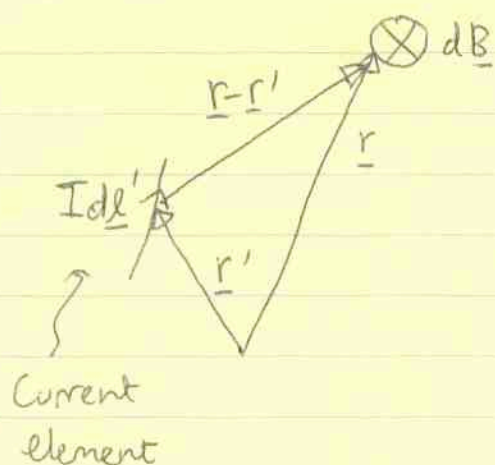 dB
r-r'
r
Idl'
r'
Current
element